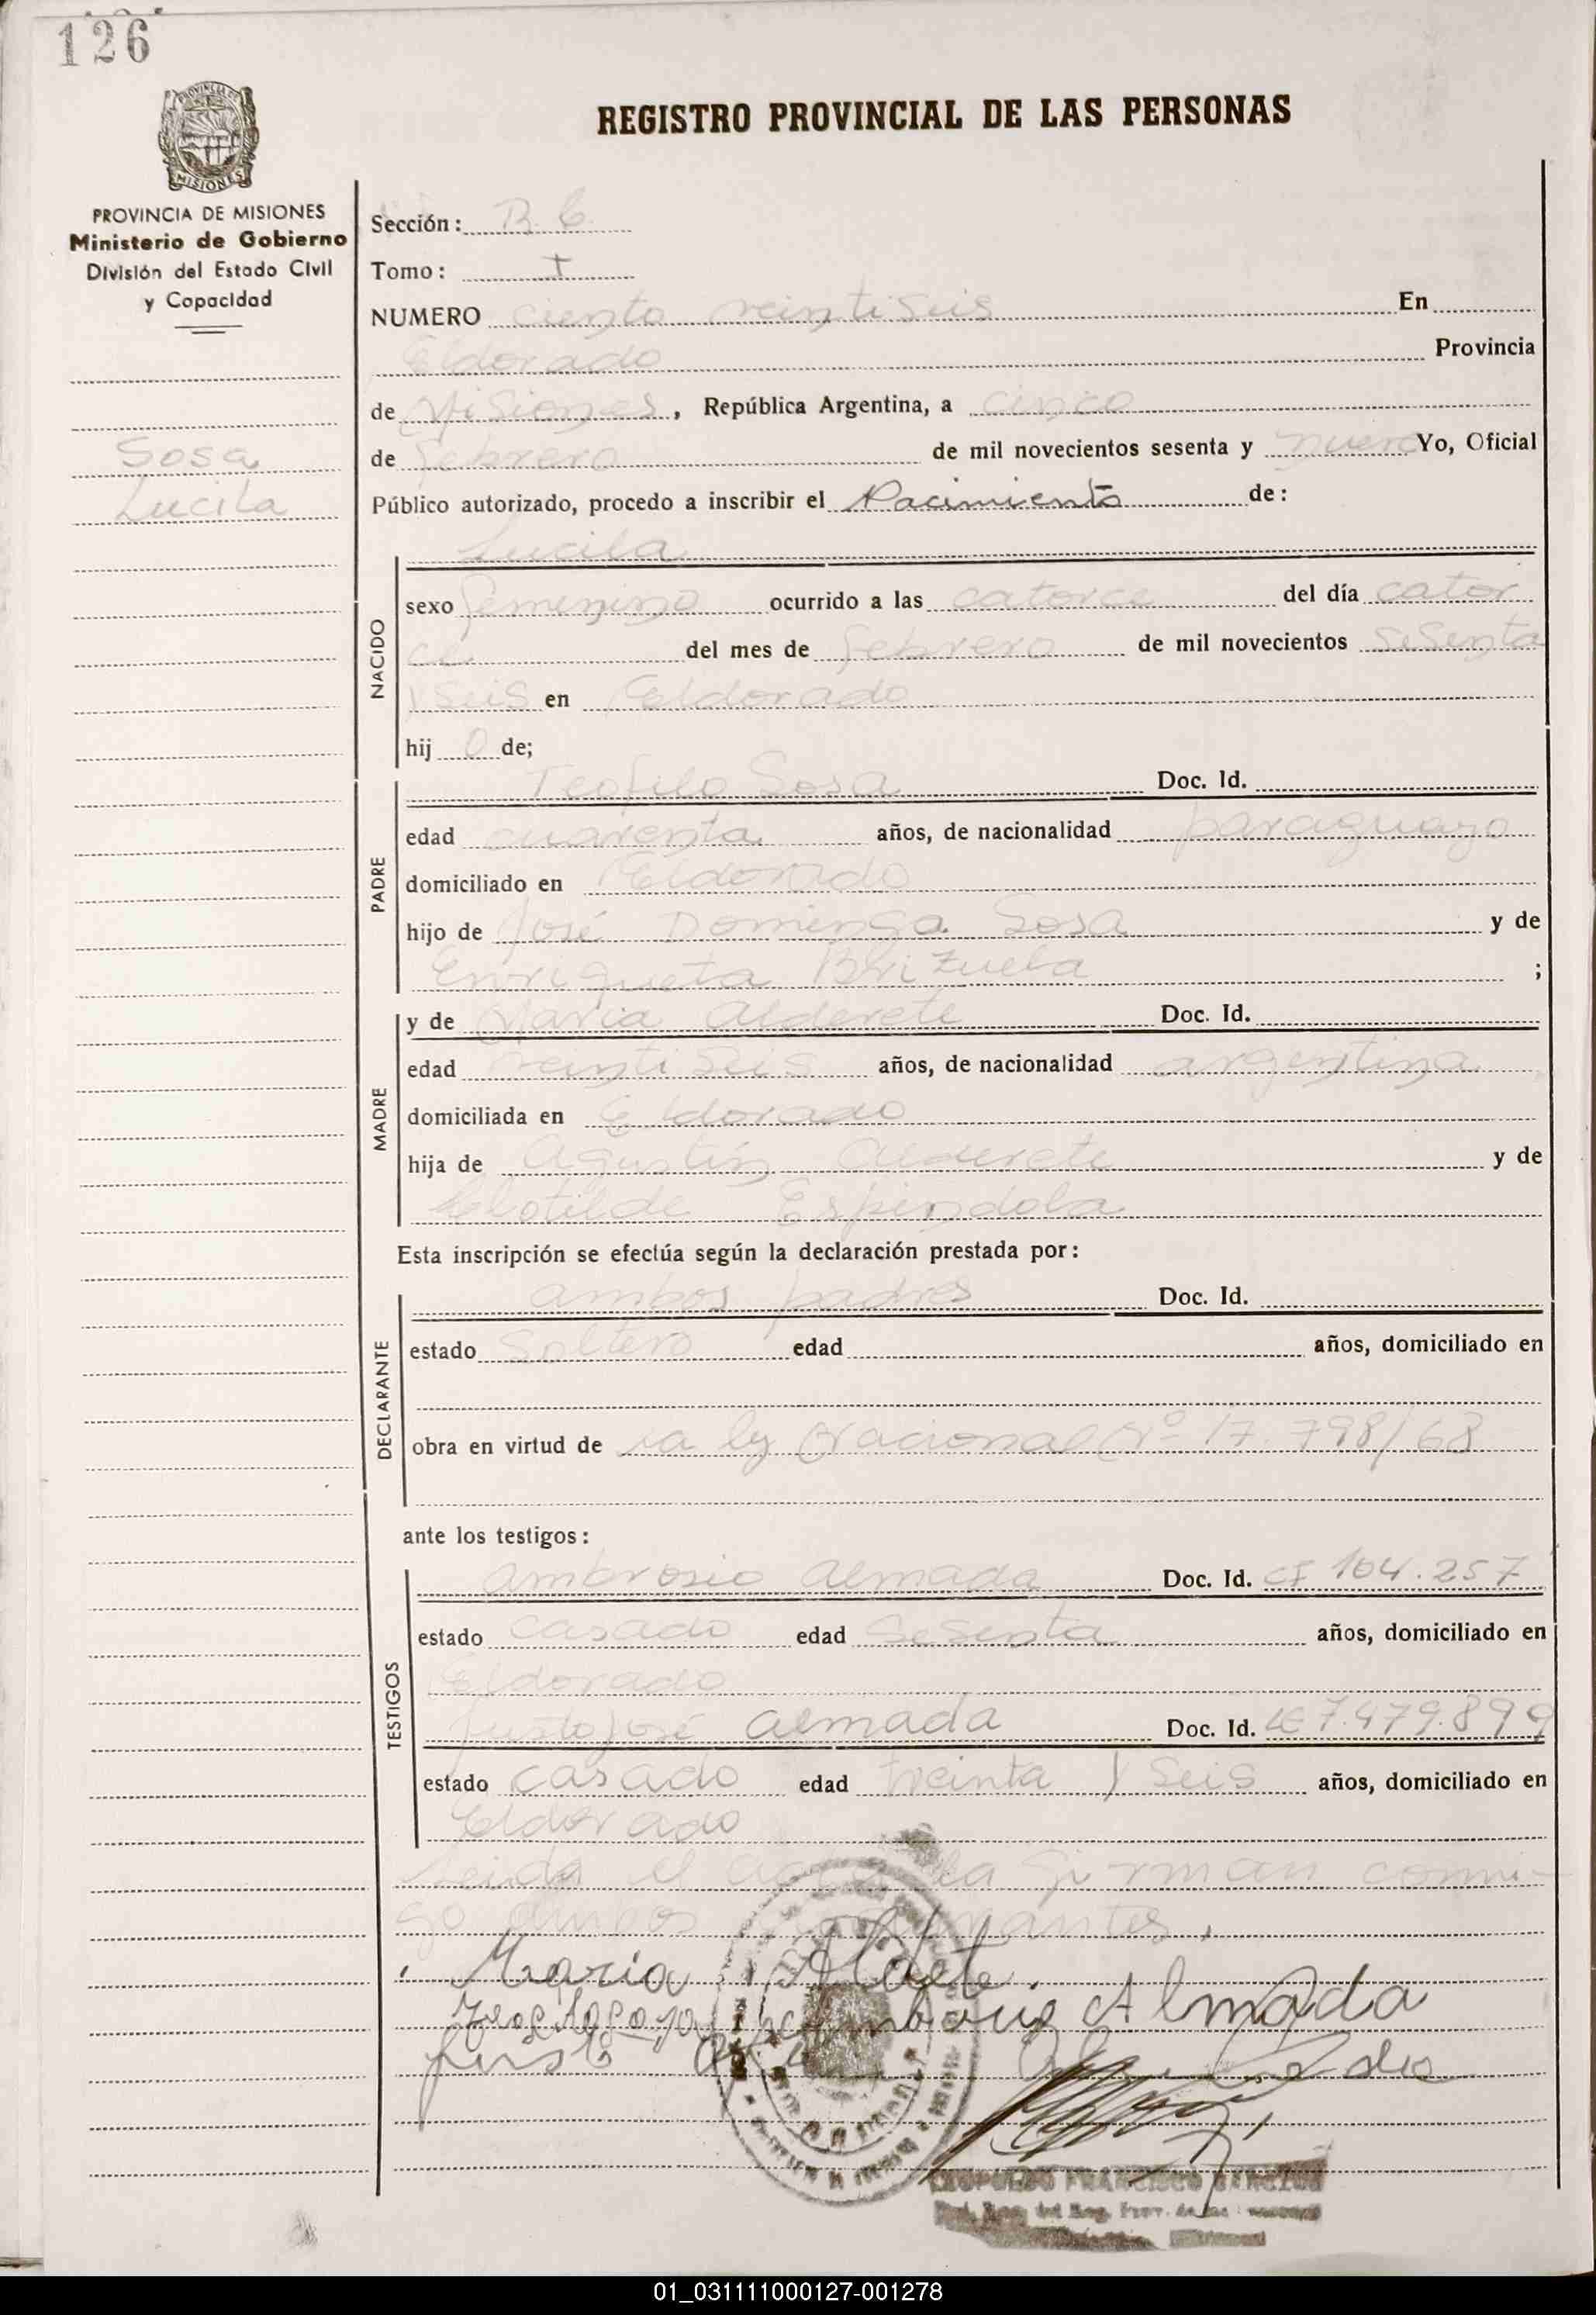 126
REGISTRO PROVINCIAL DE LAS PERSONAS
PROVINCIA DE MISIONES
Ministerio de Gobierno
División del Estado Civil
y Capacidad
Sosa
Lucila
Sección: B. C.
Tomo: I
NUMERO ciento veintiseis En
Eldorado Provincia
de Misiones, República Argentina, a cinco
de febrero de mil novecientos sesenta y nueve Yo, Oficial
Público autorizado, procedo a inscribir el Nacimiento de:
NACIDO
Lucila
sexo femenino ocurrido a las catorce del día cator
ce del mes de febrero de mil novecientos sesenta
y seis en Eldorado
hij de;
PADRE
Teofilo Sosa Doc. Id.
edad cuarenta años, de nacionalidad paraguayo
domiciliado en Eldorado
hijo de José Dominga Sosa y de
Enriqueta Brizuela ;
MADRE
y de Maria Alderete Doc. Id.
edad veintiseis años, de nacionalidad argentina
domiciliada en Eldorado
hija de Agustín Alderete y de
Clotilde Espindola
Esta inscripción se efectúa según la declaración prestada por:
DECLARANTE
ambos padres Doc. Id.
estado Soltero edad años, domiciliado en
obra en virtud de la ley Nacional Nº 17.798/68
ante los testigos:
TESTIGOS
Ambrosio Almada Doc. Id. CI 104.257
estado casado edad sesenta años, domiciliado en
Eldorado
Justo José Almada Doc. Id. LE 7.479.899
estado casado edad treinta y seis años, domiciliado en
Eldorado
Leida el acta la firman conmi-
go ambos
Maria
Almada
Justo
LEOPOLDO FRANCISCO
01_031111000127-001278